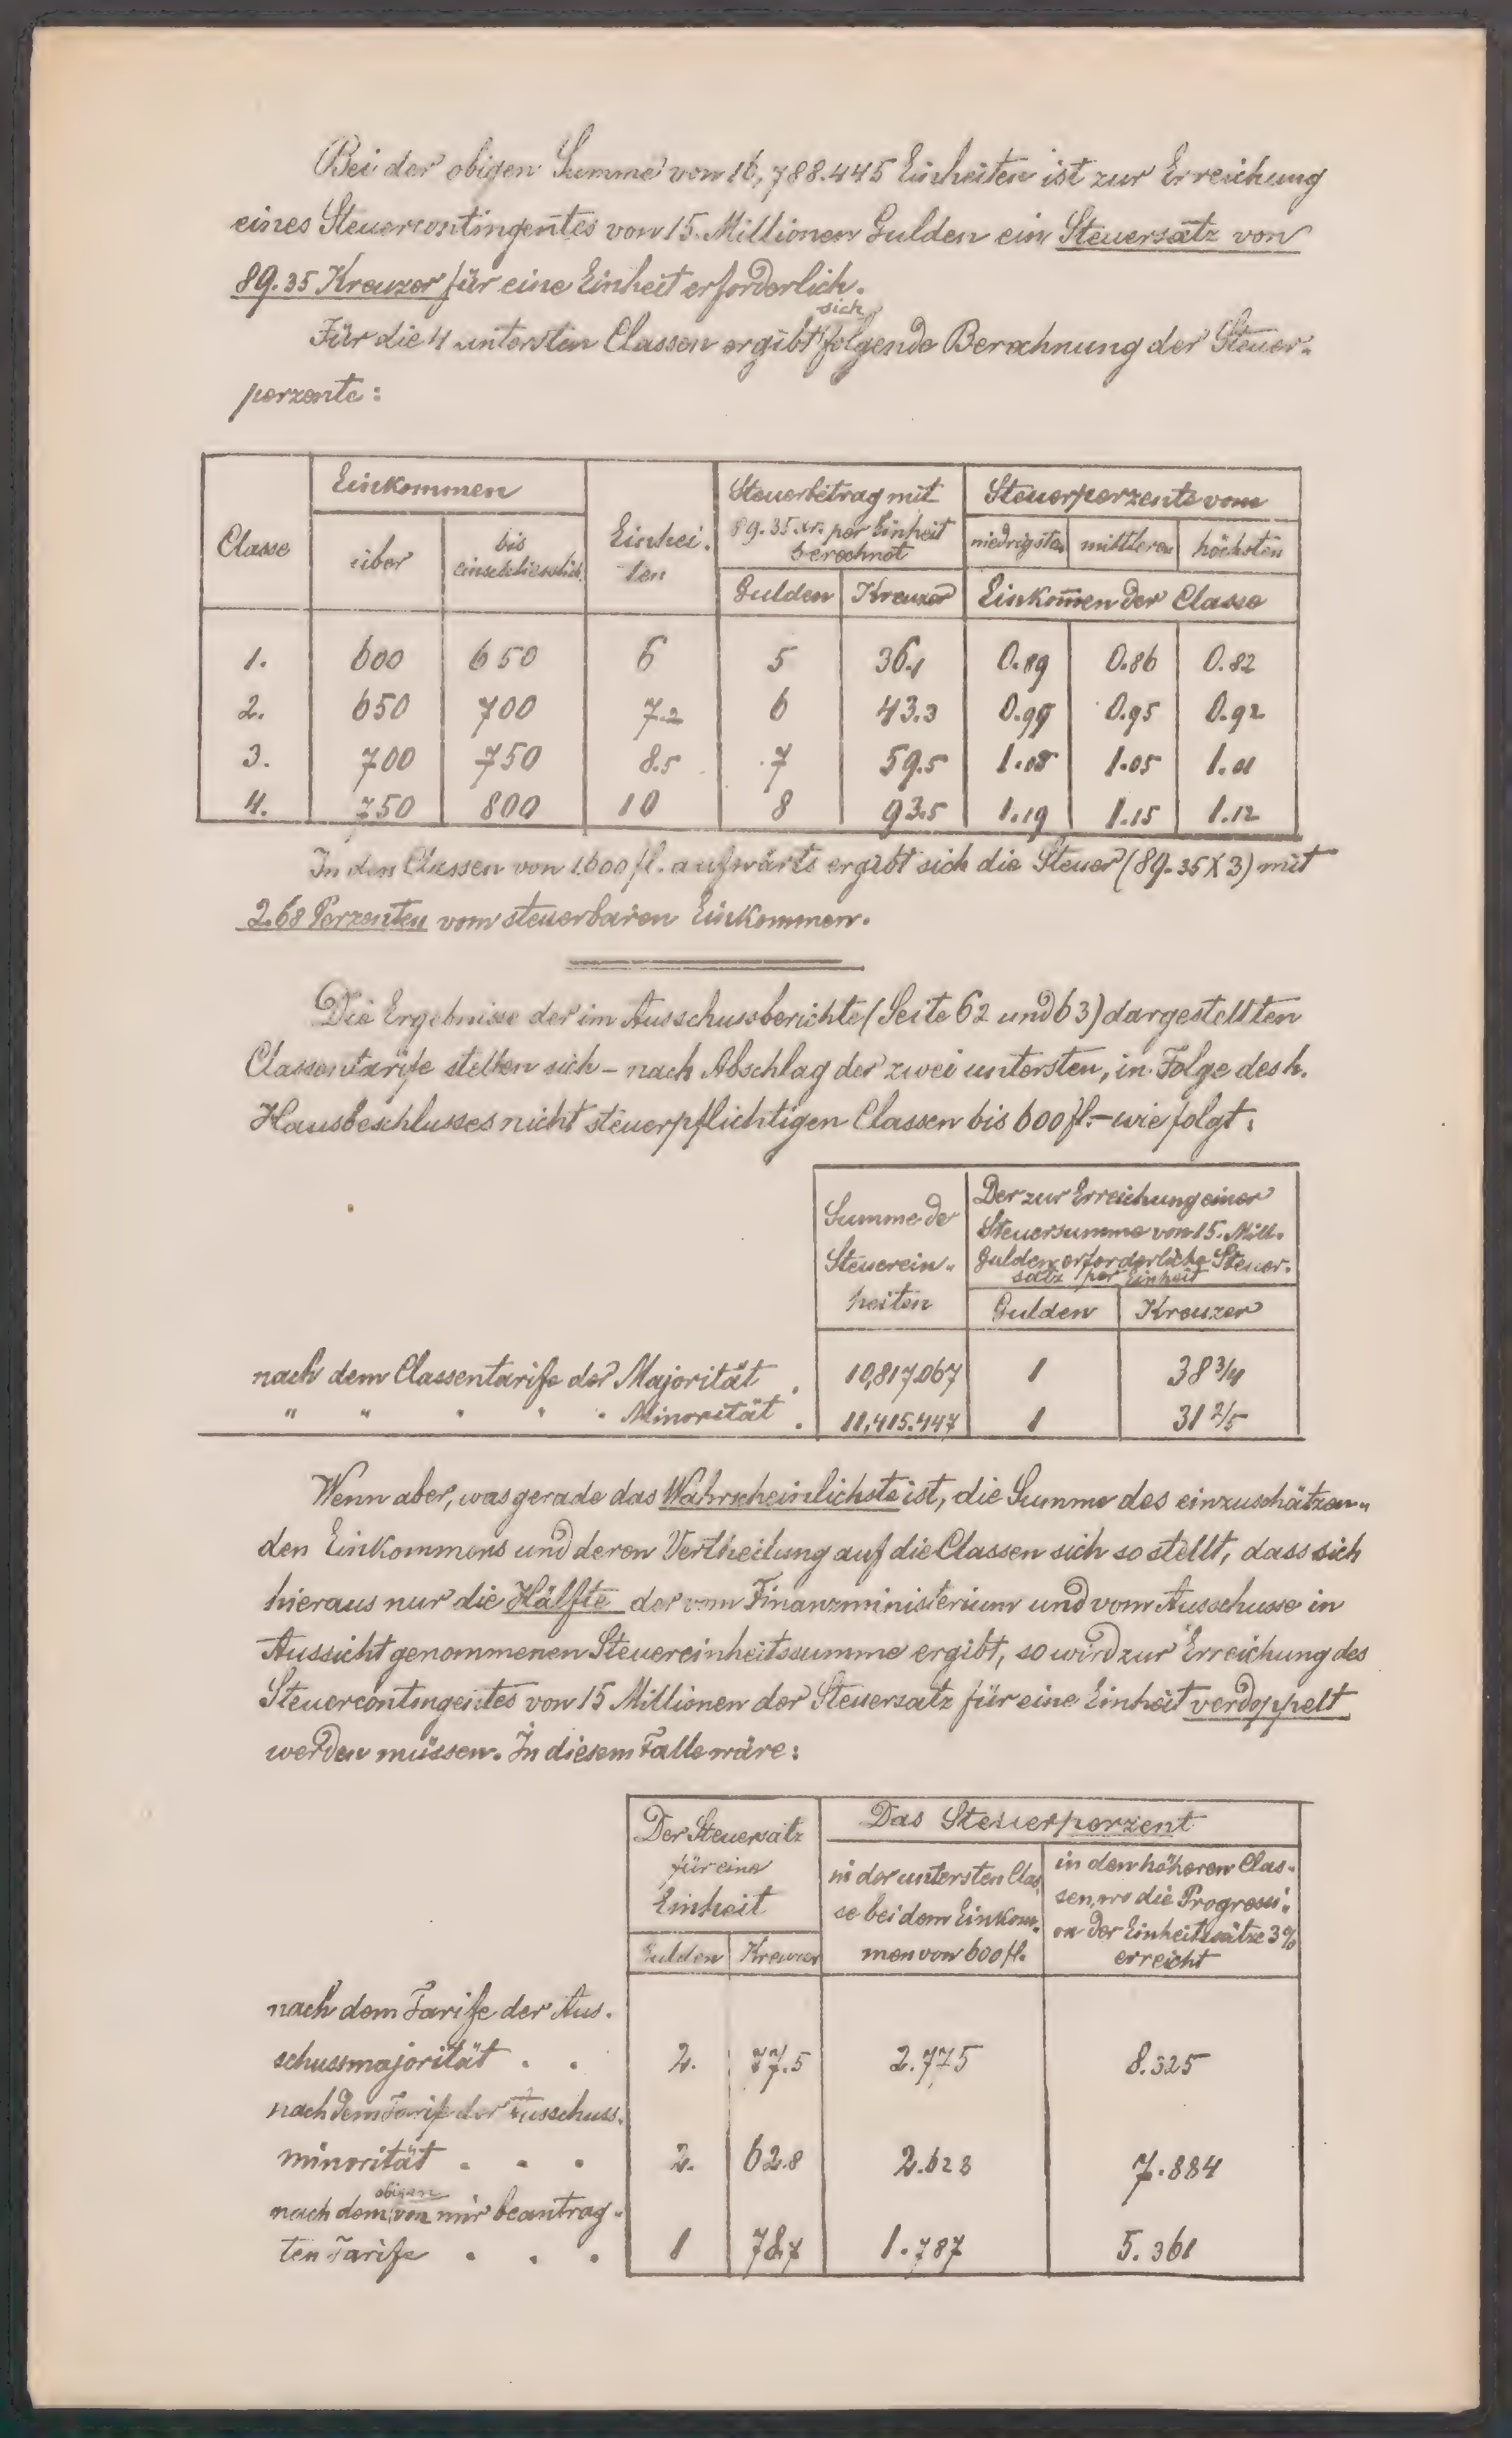 Bei der obigen Summe von 16,788.445 Einheiten ist zur Erreichung
eines Steuercontingentes von 15. Millionen Gulden ein Steuersatz von
89.35 Kreuzer für eine Einheit erforderlich.
Für die 4 untersten Classen ergibt sich folgende Berechnung der Steuer-
perzente:
Classe Einkommen Einhei- Steuerbetrag mit Steuerperzente vom
über bis einschliesslich ten 89.35 xr. per Einheit berechnet niedrigsten mittleren höchsten
Gulden Kreuzer Einkommen der Classe
1. 600 650 6 5 36.1 0.89 0.86 0.82
2. 650 700 7.2 6 43.3 0.99 0.95 0.92
3. 700 750 8.5 7 59.5 1.08 1.05 1.01
4. 750 800 10 8 93.5 1.19 1.15 1.12
In den Classen von 1600 fl. aufwärts ergibt sich die Steuer (89.35 X 3) mit
2.68 Perzenten vom steuerbaren Einkommen.
Die Ergebnisse der im Ausschussberichte (Seite 62 und 63) dargestellten
Classentarife stellen sich – nach Abschlag der zwei untersten, in Folge des h.
Hausbeschlusses nicht steuerpflichtigen Classen bis 600 fl. – wie folgt:
Summe der Der zur Erreichung einer
Steuersumme von 15. Mill.
Steuerein- Gulden erforderliche Steuer-
satz per Einheit
heiten Gulden Kreuzer
nach dem Classentarife der Majorität . 10,817.067 1 38 3/4
" " " " " Minorität . 11,415.447 1 31 2/5
Wenn aber, was gerade das Wahrscheinlichste ist, die Summe des einzuschätzen-
den Einkommens und deren Vertheilung auf die Classen sich so stellt, dass sich
hieraus nur die Hälfte der vom Finanzministerium und vom Ausschusse in
Aussicht genommenen Steuereinheitssumme ergibt, so wird zur Erreichung des
Steuercontingentes von 15 Millionen der Steuersatz für eine Einheit verdoppelt
werden müssen. In diesem Falle wäre:
Der Steuersatz Das Steuerperzent
für eine in der untersten Clas- in den höheren Clas-
Einheit se bei dem Einkom- sen, wo die Progressi-
on der Einheitssätze 3%
Gulden Kreuzer men von 600 fl. erreicht
nach dem Tarife der Aus-
schussmajorität . . 2. 77.5 2.775 8.325
nach dem Tarife der Ausschuss-
minorität . . . 2. 62.8 2.628 7.884
nach dem obigen von mir beantrag-
ten Tarife . . . 1 78.7 1.787 5.361